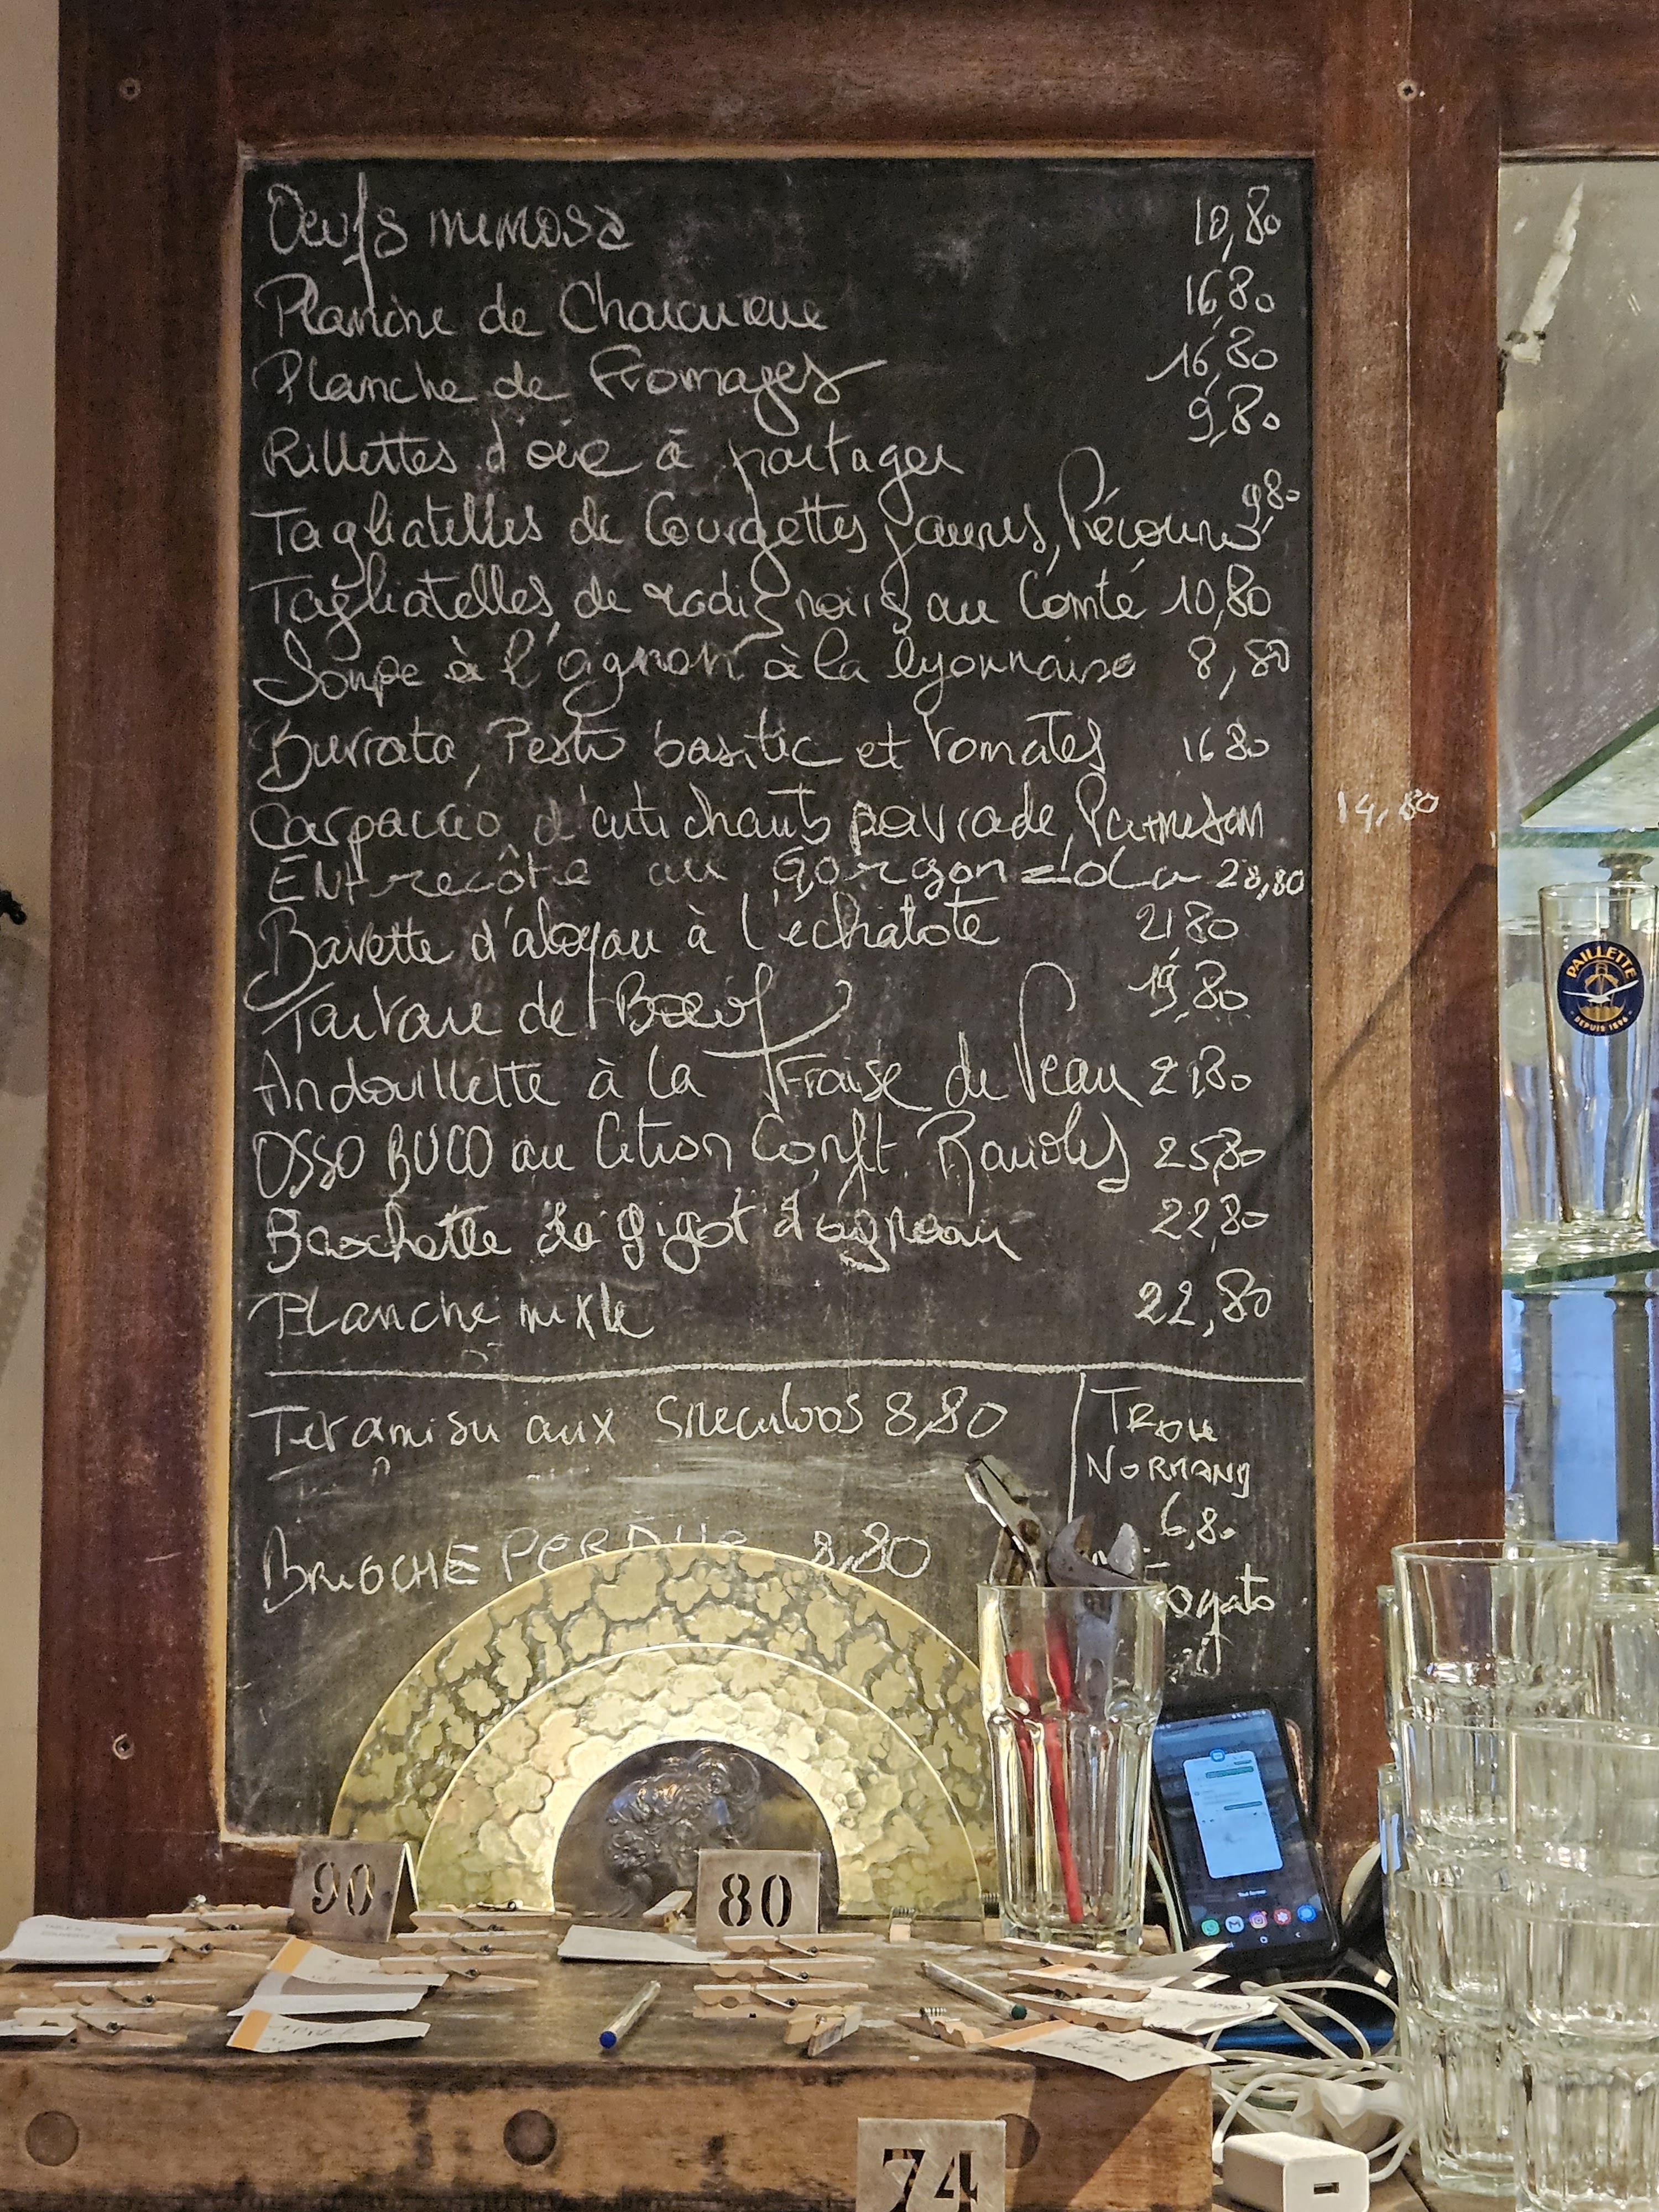 Oeufs mimosa 10,80
Planche de Charcuterie 16,80
Planche de Fromages 16,80
Rillettes d'oie à partager 9,80
Tagliatelles de Courgettes jaunes, Pécorino 9,80
Tagliatelles de radis noirs au Comté 10,80
Soupe à l'ognon à la lyonnaise 8,80
Burrata, Pesto basilic et tomates 16 80
Carpaccio d'artichauts poivrade, Parmesan 14,80
ENtrecôte au gorgonzola 28,80
Bavette d'aloyau à l'échalote 21,80
Tartare de Boeuf 19,80
Andouillette à la Fraise de Veau 21,80
OSSO BUCO au Citron Confit, Ravioles 25,80
Brochette de gigot d'agneau 22,80
Planche mixte 22,80
Teramisu aux Speculoos 8,80
TROU
NORMAND
6,80
BRIOCHE PERDUE 8,80
PAILLETTE
DEPUIS 1896
90
80
74